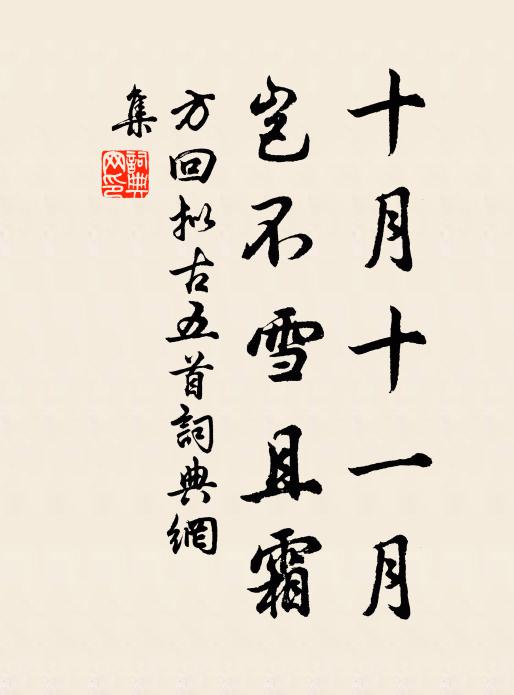 十月十一月
岂不雪且霜
方回拟古五首詞典網
集
詞典
网印